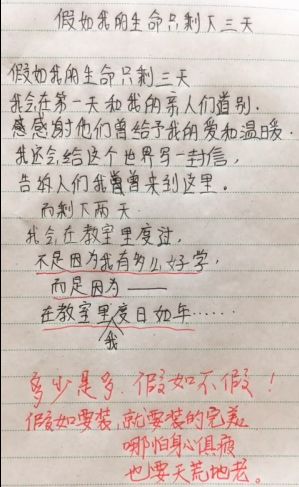 假如我的生命只剩下三天
假如我的生命只剩三天
我会在第一天和我的亲人们道别.
感感谢他们曾给予我的爱和温暖.
我还会给这个世界写一封信,
告诉人们我曾曾来到这里。
而剩下两天.
我会在教室里度过,
不是因为我有多么好学,
而是因为——
在教室里度日如年……
我
多少是多.假如不假!
假如要装,就要装的完美
哪怕身心俱疲
也要天荒地老。